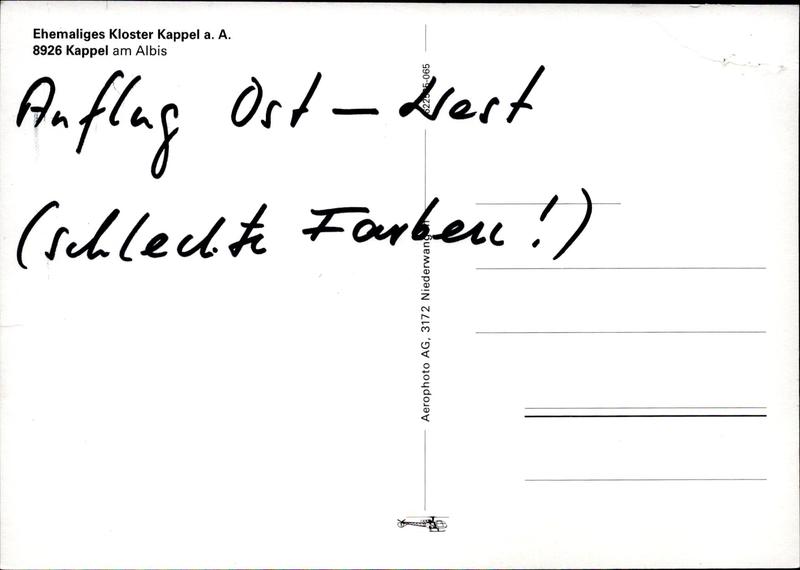 Ehemaliges Kloster Kappel a. A.
8926 Kappel am Albis
Anflug Ost – West
(schlechte Farben!)
Aerophoto AG, 3172 Niederwangen